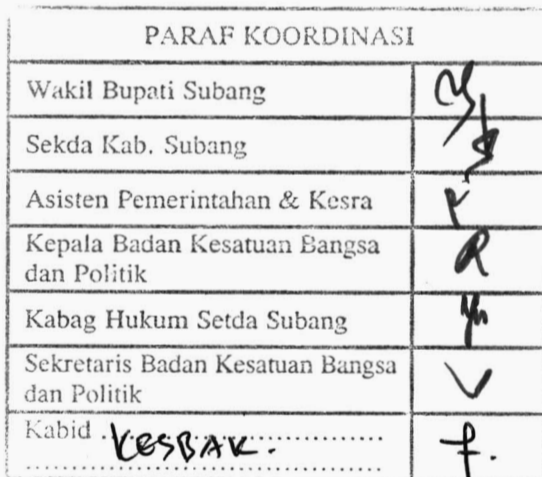 PARAF KOORDINASI
Wakil Bupati Subang
Sekda Kab. Subang
Asisten Pemerintahan & Kesra
Kepala Badan Kesatuan Bangsa
dan Politik
Kabag Hukum Setda Subang
Sekretaris Badan Kesatuan Bangsa
dan Politik
Kabid .. KESBAK.